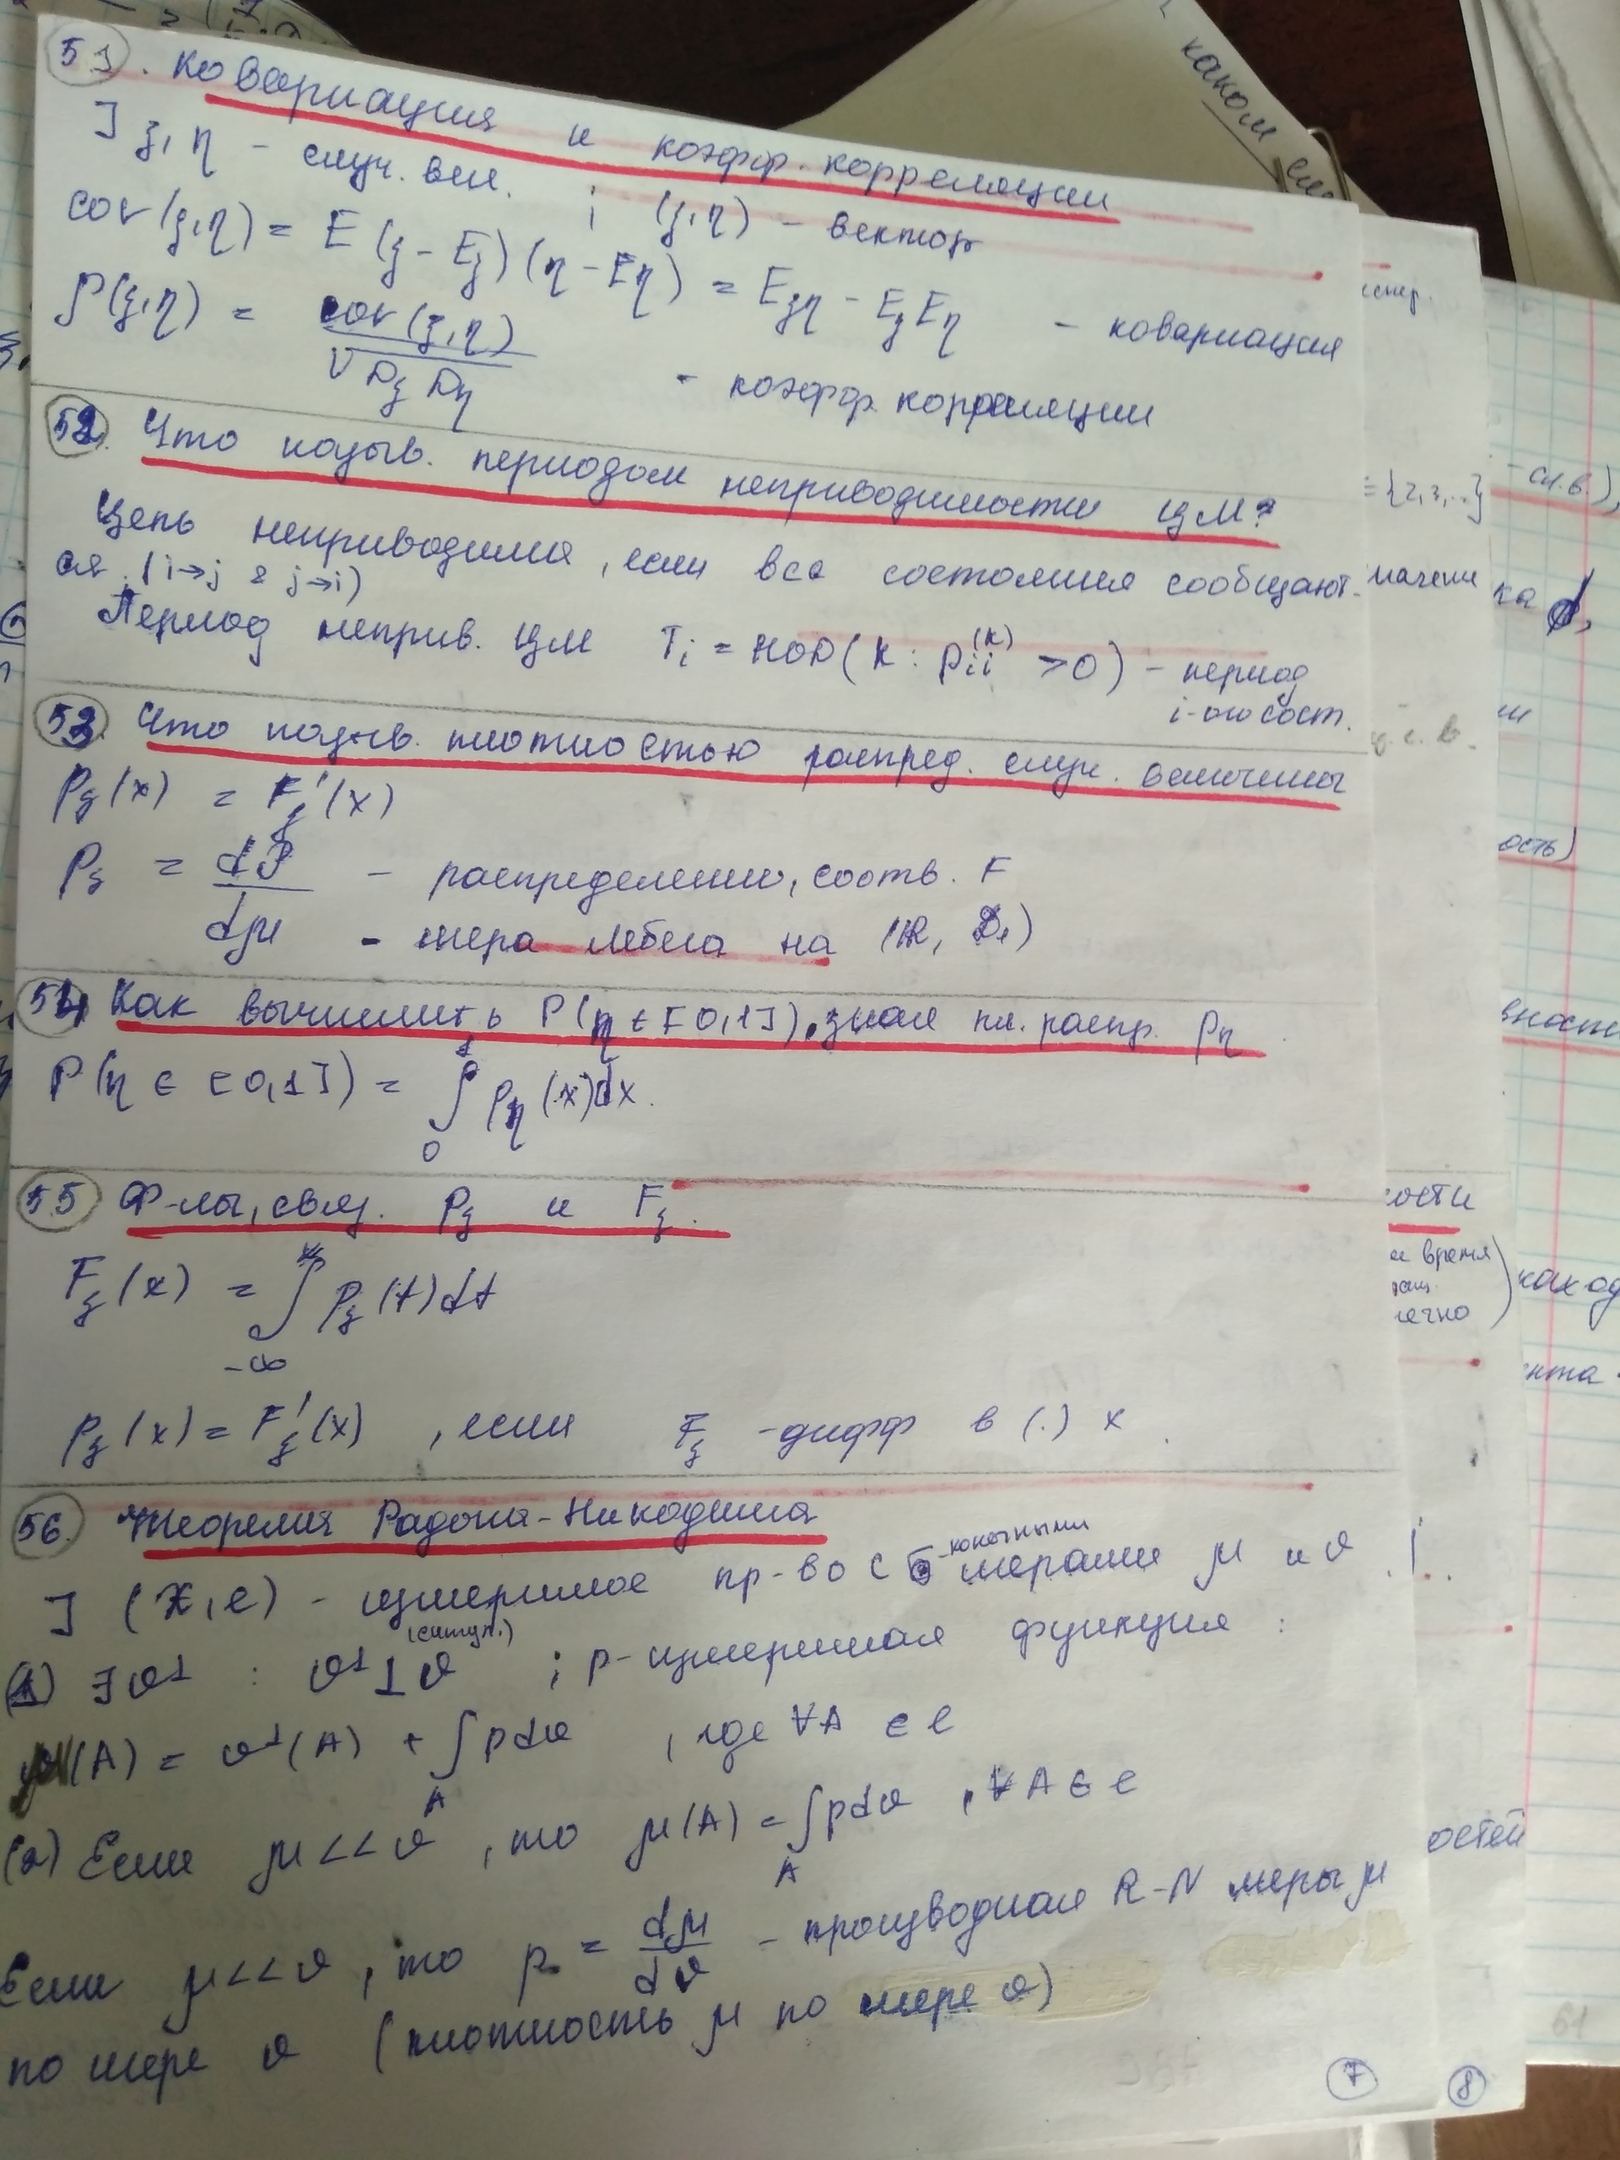 51. Ковариация и коэфф. корреляции
] ξ, η - случ. вел. ; (ξ, η) - вектор
cov(ξ,η) = E(ξ - Eξ)(η - Eη) = Eξη - EξEη - ковариация
ρ(ξ,η) = cov(ξ,η) / √DξDη - коэфф. корреляции
52. Что назыв. периодом неприводимости ЦМ?
Цепь неприводимая, если все состояния сообщают-
ся. (i→j & j→i)
Период неприв. ЦМ Ti = НОД(k : pii^(k) > 0) - период
i-ого сост.
53. Что назыв. плотностью распред. случ. величины
Pξ(x) = Fξ'(x)
Pξ = dP - распределение, соотв. F
dμ - мера Лебега на (ℝ, B1)
54. Как вычислить P(η ∈ [0,1]), зная пл. распр. Pη
P(η ∈ [0,1]) = ∫₀¹ pη(x)dx.
55 Ф-лы, связ. Pξ и Fξ.
Fξ(x) = ∫₋∞ˣ pξ(t)dt
pξ(x) = Fξ'(x) , если Fξ - дифф в (.) x
56. Теорема Радона-Никодима
] (X, ℓ) - измеримое пр-во с σ-конечными мерами μ и ϑ
(1) ∃ ϑ⊥ : ϑ⊥ ⊥ ϑ (сингул.) ; p - измеримая функция :
μ(A) = ϑ⊥(A) + ∫_A pdϑ , где ∀A ∈ ℓ
(2) Если μ << ϑ , то μ(A) = ∫_A pdϑ , ∀A ∈ ℓ
Если μ << ϑ , то p = dμ/dϑ - производная R-N меры μ
по мере ϑ (плотность μ по мере ϑ)
7
8
каком
= {2,3,..}
- сл.в.),
ка
ость)
вност
ости
время
ечно
наход
нта
остей
61